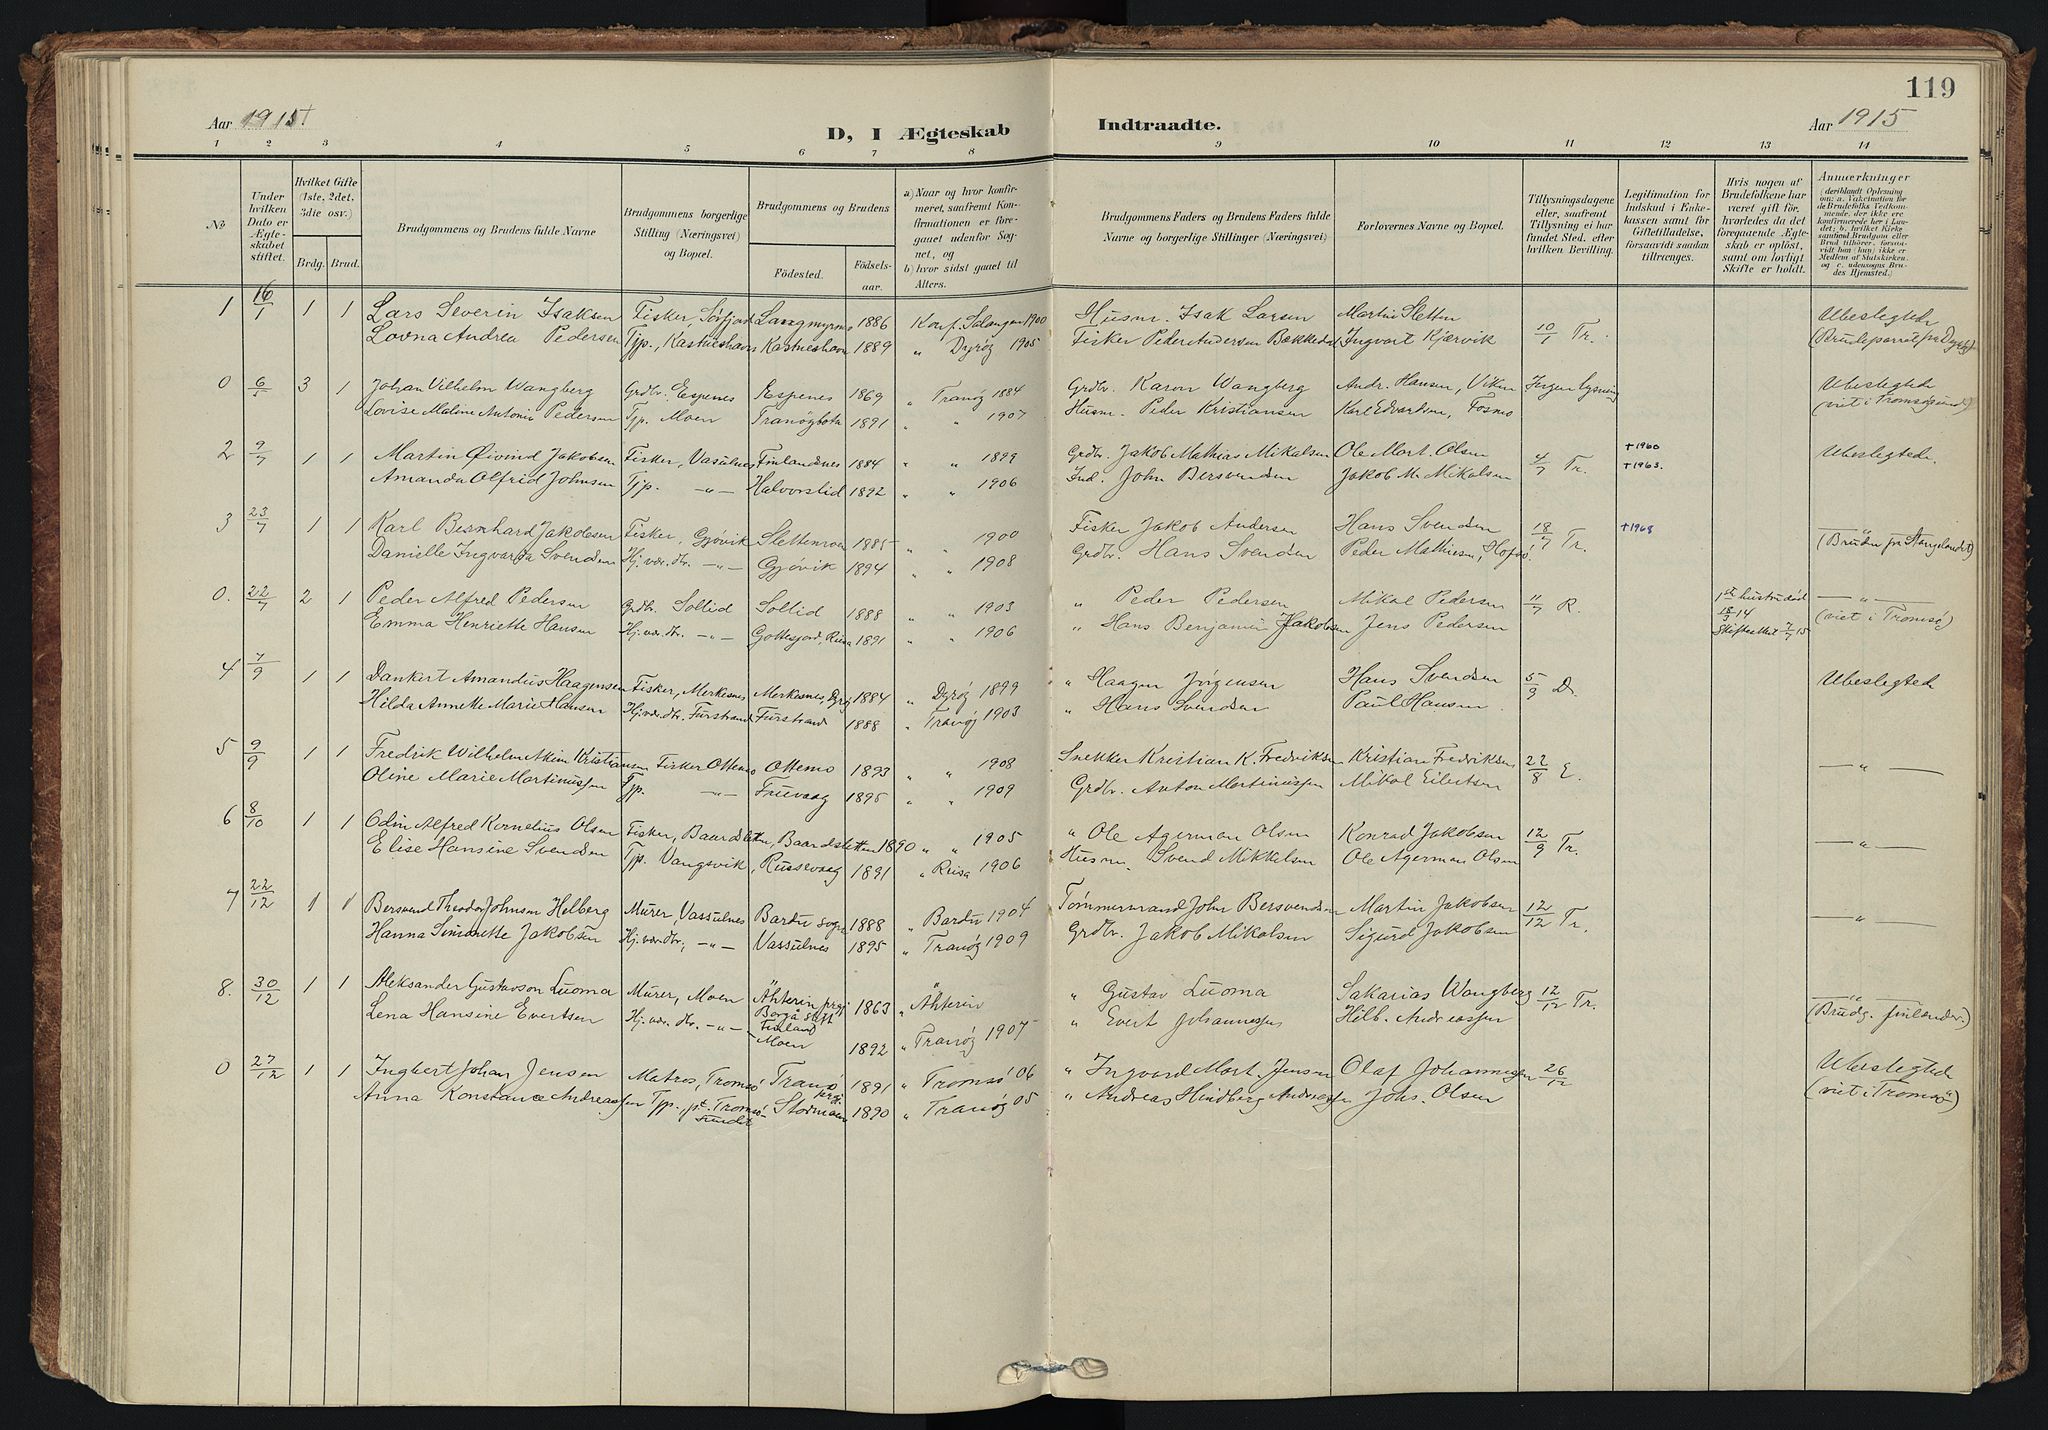 119
Aar 1915
D, I Ægteskab Indtraadte.
Aar 1915
1 2 3 4 5 6 7 8 9 10 11 12 13 14
No
Under hvilken Dato er Ægteskabet stiftet.
Hvilket Gifte (1ste, 2det, 3die osv.)
Brdg. Brud.
Brudgommens og Brudens fulde Navne
Brudgommens borgerlige Stilling (Næringsvei) og Bopæl.
Brudgommens og Brudens
Födested.
Födselsaar.
a) Naar og hvor konfirmeret, saafremt Konfirmationen er foregaaet udenfor Sognet, og
b) hvor sidst gaaet til Alters.
Brudgommens Faders og Brudens Faders fulde Navne og borgerlige Stillinger (Næringsvei)
Forlovernes Navne og Bopæl.
Tillysningsdagene eller, saafremt Tillysning ei har fundet Sted, efter hvilken Bevilling.
Legitimation for Indskud i Enkekassen samt for Giftetilladelse, forsaavidt saadan tiltrænges.
Hvis nogen af Brudefolkene har været gift før, hvorledes da det foregaaende Ægteskab er oplöst, samt om lovligt Skifte er holdt.
Anmerkninger
(deriblandt Oplysning om: a. Vakcination for de Brudefolks Vedkommende, der ikke ere konfirmerede her i Landet; b. hvilket Kirkesamfund Brudgom eller Brud tilhörer, forsaavidt han (hun) ikke er Medlem af Statskirken, og c. udensogns Brudes Hjemsted.)
1 16/1 1 1 Lars Severin Isaksen Fisker, Sørfjord Langmyrmo 1886 Konf. Salangen 1900 Husm. Isak Larsen Martin Sletten 10/1 Tr. Ubeslegtede
Lovna Andrea Pedersen Tjp., Kastneshavn Kastneshavn 1889 " Dyrøy 1905 Fisker Peder Andersen Bækkedal Ingvart Kjærvik (Brudeparret fra Dyrøy)
0 6/5 3 1 Johan Vilhelm Wangberg Grdbr. Espenes Espenes 1869 " Tranøy 1884 Grdbr. Karon Wangberg Andr. Hansen, Viken Ingen lysning Ubeslegtede
Lovise Maline Antonie Pedersen Tjp. Moen Tranøybotn 1891 " " 1907 Husm. Peder Kristiansen Karl Edvardsen, Fosmo (viet i Tromsøsund)
2 9/7 1 1 Martin Øivind Jakobsen Fisker, Vasulnes Finlandsnes 1884 " " 1899 Grdbr. Jakob Mathias Mikalsen Ole Mart. Olsen 4/7 Tr. †1960 Ubeslegtede.
Amanda Olfrid Johnsen Tjp. -"- Halvorslid 1892 " " 1906 Ind. John Bersvendsen Jakob M. Mikalsen †1963.
3 23/7 1 1 Karl Bernhard Jakobsen Fisker, Gjøvik Slettemoen 1885 " " 1900 Fisker Jakob Andersen Hans Svendsen 18/7 Tr. †1968 —"—
Danielle Ingvarda Svendsen Hj. vær. dtr. -"- Gjøvik 1894 " " 1908 Grdbr. Hans Svendsen Peder Mathiesen, Hofsø. (Bruden fra Stangelandet)
0. 22/7 2 1 Peder Alfred Pedersen Grdbr. Sollid Sollid 1888 " 1903 " Peder Pedersen Mikal Pedersen 11/7 R. 1ste hustru död 18/3 14 —"—
Emma Henriette Hansen Hj. vær. dtr. -"- Gottesjord, Reisa 1891 " " 1906 " Hans Benjamin Jakobsen Jens Pedersen Skifteattest 7/7 15 (viet i Tromsø)
4 7/9 1 1 Dankert Amandus Haagensen Fisker, Merkesnes Merkesnes, Dyrøy 1884 " Dyrøy 1899 " Haagen Jørgensen Hans Svendsen 5/9 D. Ubeslegtede
Hilda Annette Marie Hansen Hj. vær. dtr. Furstrand Furstrand 1888 " Tranøy 1903 " Hans Svendsen Paul Hansen
5 9/9 1 1 Fredrik Wilhelm Akim Kristiansen Fisker Ottemo Ottemo 1893 " " 1908 Snekker Kristian K. Fredriksen Kristian Fredriksen 22/8 E. —"—
Oline Marie Martinussen Tjp. -"- Truevaag 1895 " " 1909 Grdbr. Anton Martinussen Mikal Eilertsen
6 8/10 1 1 Odin Alfred Kornelius Olsen Fisker, Baardsletten, Baardsletten 1890 " " 1905 " Ole Agerman Olsen Konrad Jakobsen 12/9 Tr. —"—
Elise Hansine Svendsen Tjp. Vangsvik, Russevaag 1891 " Reisa 1906 Husm. Svend Mikkelsen Ole Agerman Olsen
7 22/12 1 1 Bersvend Theodor Johnsen Helberg Murer, Vassulnes Bardu sogn 1888 " Bardu 1904 Tømmermand John Bersvendsen Martin Jakobsen 12/12 Tr. —"—
Hanna Simonette Jakobsen Hj. vær. dtr, -"- Vassulnes 1895 " Tranøy 1909 Grdbr. Jakob Mikalsen Sigurd Jakobsen
8. 30/12 1 1 Aleksander Gustavson Luoma Murer, Moen Ähterin prgj. Borgå stift Finland 1863 " Ähterin " Gustav Luoma Sakarias Wangberg 12/12 Tr. —"—
Lena Hansine Evertsen Hj. vær. dtr. -"- Moen 1892 " Tranøy 1907 " Evert Johannessen Hilb. Andreassen (Brudg. finlænder.)
0 27/12 1 1 Ingbert Johan Jensen Matros, Tromsø Tranø prgj. 1891 " Tromsø 06 " Ingvard Mart. Jensen Olaf Johannessen 26/12 Ubeslegtede
Anna Konstance Andreassen Tjp., pt. Tromsøsundet Stormoen 1890 " Tranøy 05 " Andreas Hindberg Andreassen Johs. Olsen (viet i Tromsø)